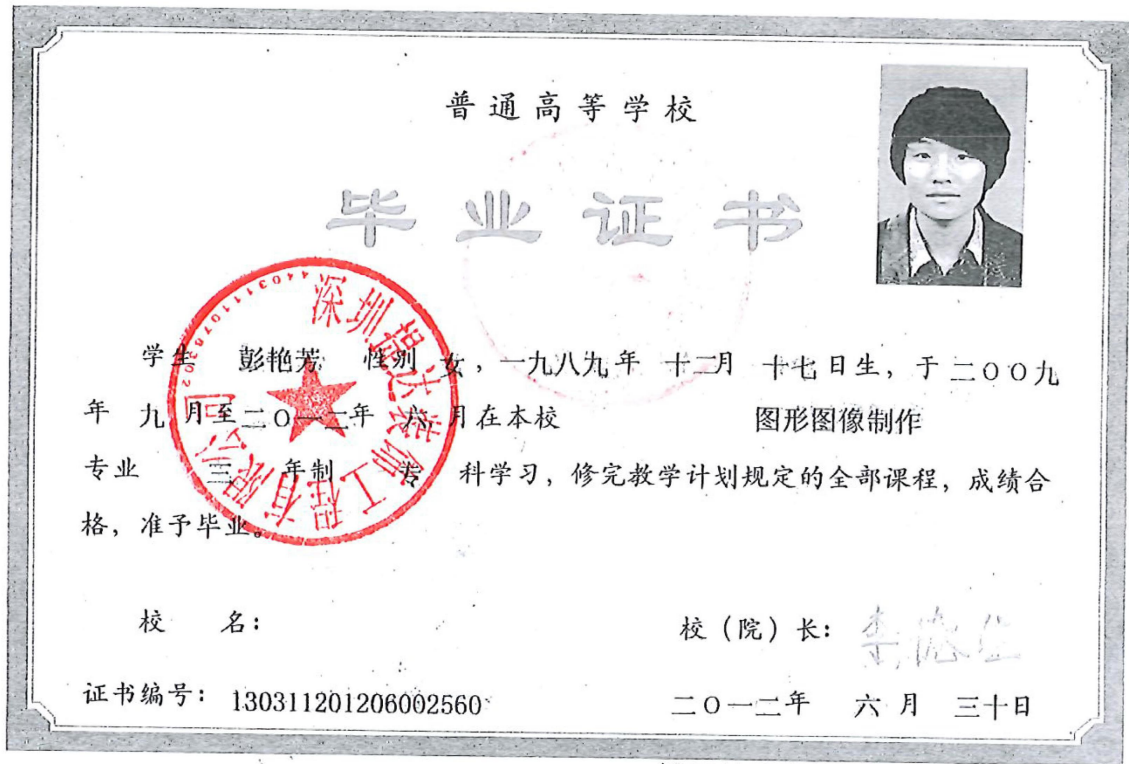 普通高等学校
毕业证书
学生 彭艳芳 性别 女，一九八九年 十二月 十七日生，于二〇〇九
年 九月至二〇一二年 六月在本校 图形图像制作
专业 三 年制 专 科学习，修完教学计划规定的全部课程，成绩合
格，准予毕业。
深圳 达装饰工程有限公司
校 名：
校（院）长：
证书编号：130311201206002560
二〇一二年 六月 三十日